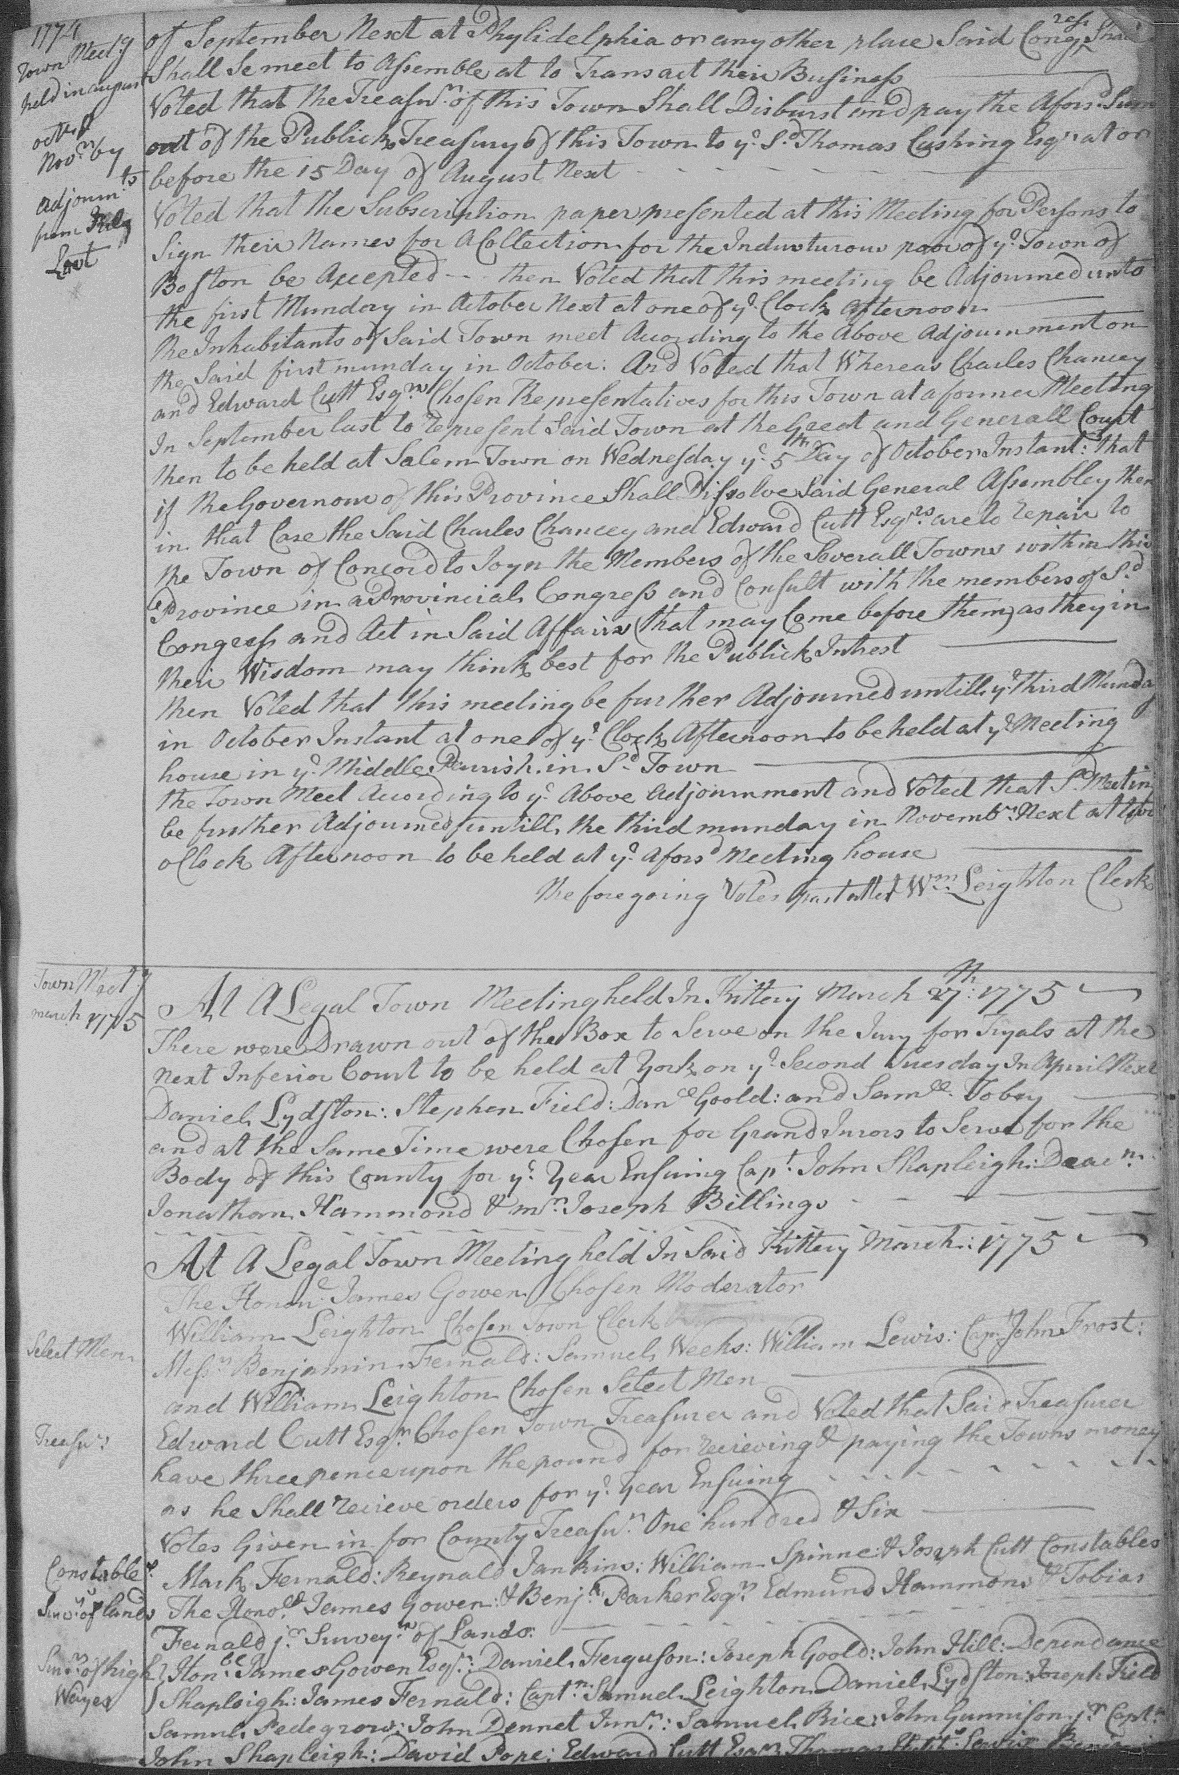 1774
Town Meetg
held in august
octr &
Novr by
adjournts
from July
Last
of September Next at Phylidelphia or any other place Said Congress
Shall Se meet to Assemble at to Transact their Business
Voted that the Treasur of this Town Shall Disburst and pay the Aforsd Sum
out of the Publick Treasury of this Town to ye Sd Thomas Cushing Esqr at or
before the 15 Day of August Next
Voted that the Subscription paper presented at this Meeting for Persons to
Sign their Names for A Collection for the Industurous poor of ye Town of
Boston be Accepted -- then Voted that this meeting be Adjourned unto
the first Munday in October Next at one of ye Clock afternoon
the Inhabitants of Said Town meet According to the Above Adjournment on
the Said first munday in October: And Voted that Whereas Charles Chancey
and Edward Cutt Esqrs Chosen Representatives for this Town at a former Meeting
In September last to represent Said Town at the Great and Generall Court
then to be held at Salem Town on Wednesday ye 5th Day of October Instant: that
if the Governour of this Province Shall Dissolve Said General Assembley then
in that Case the Said Charles Chancey and Edward Cutt Esqrs are to repair to
the Town of Concord to Joyn the Members of the Severall Towns within this
Province in a Provincial Congress and Consult with the members of Sd
Congress and Act in Said Affairs (that may Come before them) as they in
their Wisdom may think best for the Publick Intrest
then Voted that this meeting be further Adjourned untill ye third Munday
in October Instant at one of ye Clock Afternoon to be held at ye Meeting
house in ye Middle Parrish in Sd Town
the Town Meet According to ye Above Adjournment and Voted that Sd Meeting
be further Adjourned untill the third munday in Novembr Next at
oClock Afternoon to be held at ye Aforsd Meeting house
the foregoing Votes past attest Wm Leighton Clerk
Town Meetg
march 1775
At A Legal Town Meeting held In Kittery March 27th: 1775
There were Drawn out of the Box to Serve on the Jury for Tryals at the
next Inferior Court to be held at York on ye Second Tuesday In April Next
Daniel Lydston: Stephen Field: Danel Goold: and Samll Tobey
and at the Same Time were Chosen for Grand Jurors to Serve for the
Body of this County for ye Year Ensuing Capt John Shapleigh: Deacn
Jonathan Hammond & mr Joseph Billings
At A Legal Town Meeting held In Said Kittery March: 1775
The Honor James Gowen Chosen Moderator
William Leighton Chosen Town Clerk
Select Men
Messrs Benjamin Fernald: Samuel Weeks: William Lewis: Capt John Frost:
and William Leighton Chosen Select Men
Treasur
Edward Cutt Esqr Chosen Town Treasurer and Voted that Said Treasurer
have three pence upon the pound for recieving & paying the Towns money
as he Shall recieve orders for ye Year Ensuing
Votes Given in for County Treasur One hundred & Six
Constables
Mark Fernald: Reynald Jankins: William Spinne & Joseph Cutt Constables
Survs of Lands
The Honod James Gowen: & Benja Parker Esqrs Edmund Hammons & Tobias
Fernald jr Surveyrs of Lands:
Survs of high
Wayes
Honble James Gowen Esqr: Daniel Ferguson: Joseph Goold: John Hill: Dependance
Shapleigh: James Fernald: Captn Samuel Leighton Daniel Lydston: Joseph Field
Samul Pedegrow: John Dennet Junr: Samuel Rice: John Gunnison jr Captn
John Shapleigh: David Pope: Edward Cutt Esqr Thomas